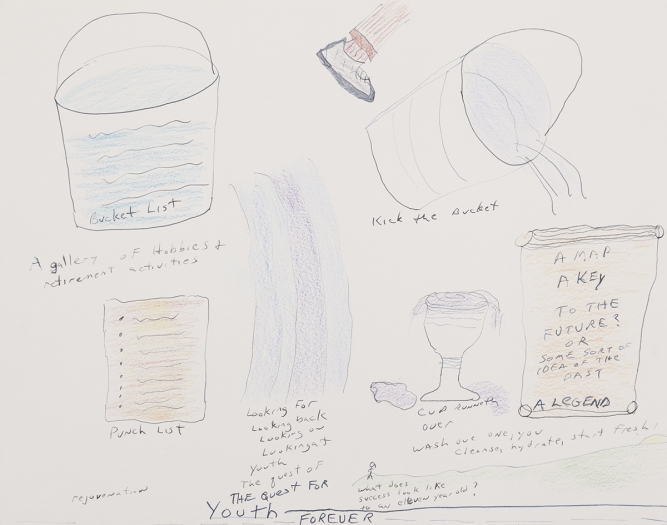 Bucket List
Kick the Bucket
A gallery of Hobbies &
retirement activities
A MAP
A KEy
TO THE
FUTURE?
OR
SOME SORT OF
IDEA OF THE
PAST
A LEGEND
Punch List
Looking For
Looking back
Looking on
Looking at
youth
The quest of
THE QUEST FOR
Youth
FOREVER
CUP RUNNETH
over
WASH out one, you
Cleanse, hydrate, start fresh!
what does
success look like
to an eleven year old?
rejuvenation